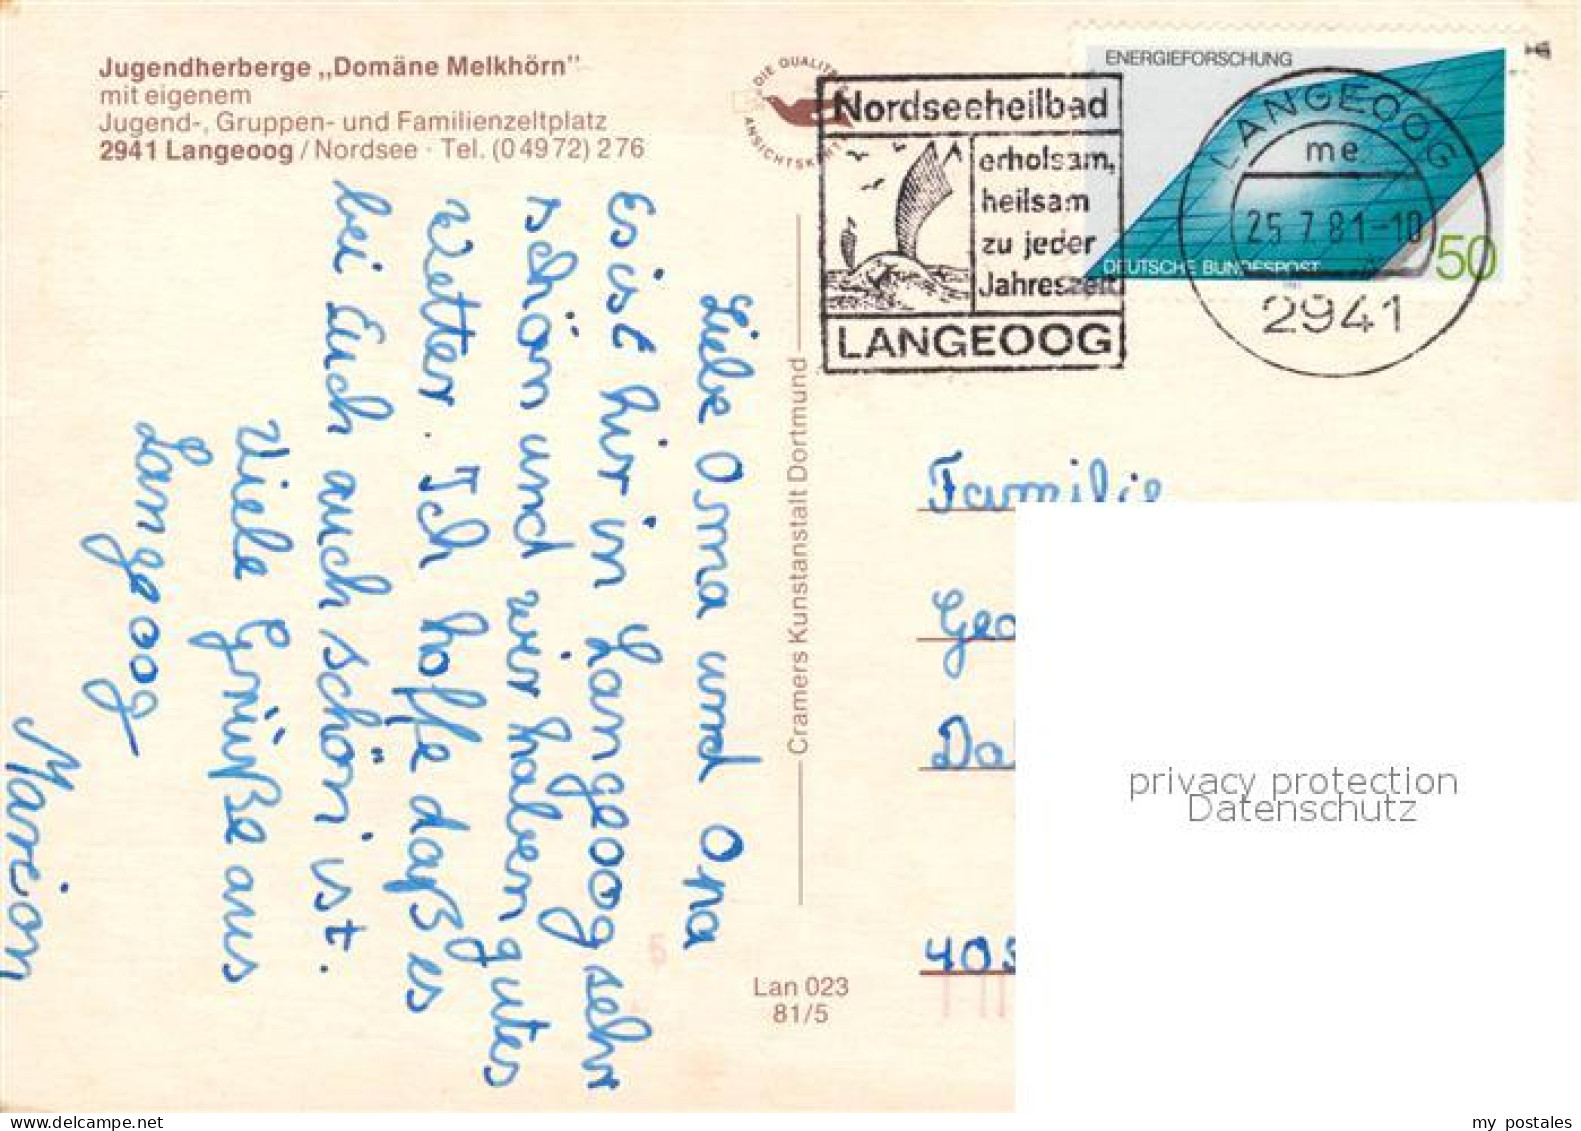 Jugendherberge „Domäne Melkhörn"
mit eigenem
Jugend-, Gruppen- und Familienzeltplatz
2941 Langeoog / Nordsee · Tel. (0 49 72) 2 76
DIE QUALITÄTS
ANSICHTSKARTE
Nordseeheilbad
erholsam,
heilsam
zu jeder
Jahreszeit
LANGEOOG
ENERGIEFORSCHUNG
DEUTSCHE BUNDESPOST
50
LANGEOOG
me
25.7.81-10
2941
Liebe Oma und Opa
Es ist hir in Langeoog sehr
schön und wir haben gutes
Wetter. Ich hoffe daß es
bei Euch auch schön ist.
Viele Grüße aus
Langeoog
Marion
Cramers Kunstanstalt Dortmund
Lan 023
81/5
Familie
Geo
Da
403
privacy protection
Datenschutz
www.delcampe.net
my_postales